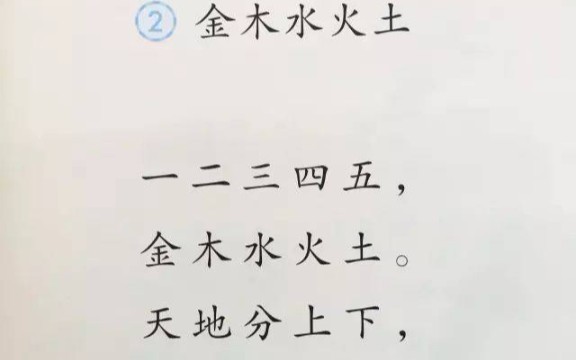 ② 金木水火土
一二三四五，
金木水火土。
天地分上下，